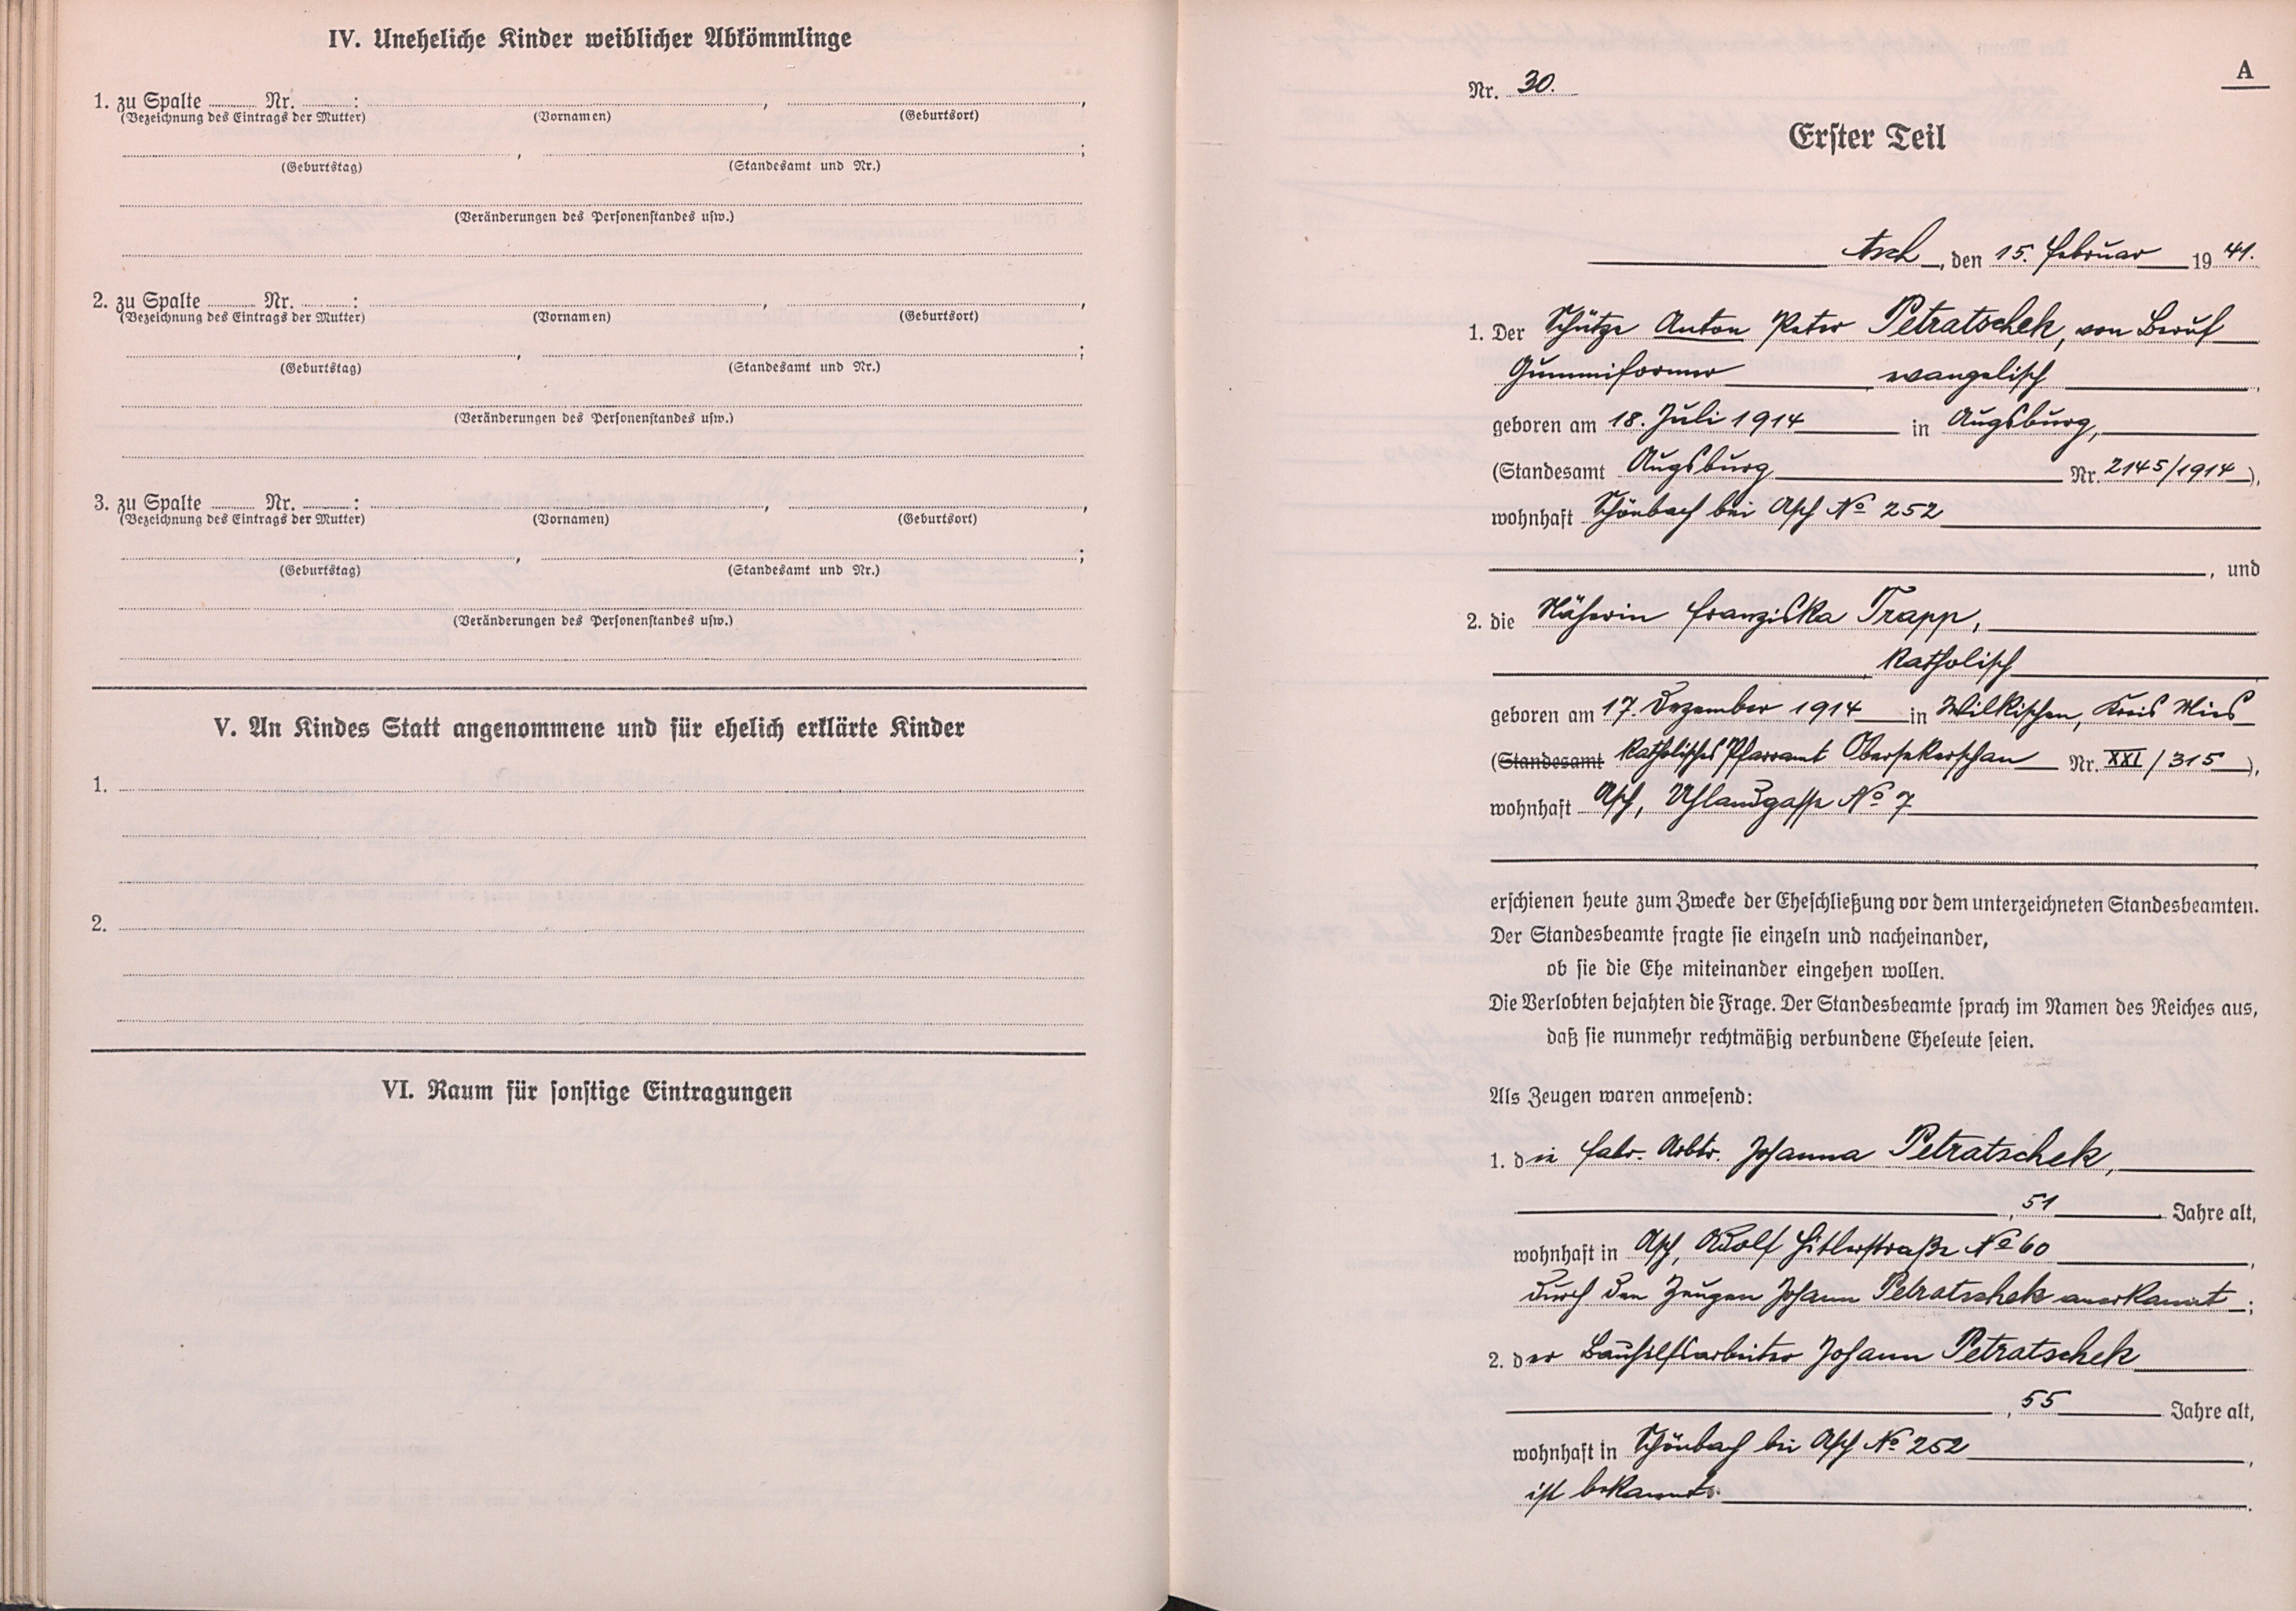 IV. Uneheliche Kinder weiblicher Abkömmlinge
1. zu Spalte ........ Nr. ........: , ,
(Bezeichnung des Eintrags der Mutter) (Vornamen) (Geburtsort)
, ;
(Geburtstag) (Standesamt und Nr.)
(Veränderungen des Personenstandes usw.)
2. zu Spalte ........ Nr. ........: , ,
(Bezeichnung des Eintrags der Mutter) (Vornamen) (Geburtsort)
, ;
(Geburtstag) (Standesamt und Nr.)
(Veränderungen des Personenstandes usw.)
3. zu Spalte ........ Nr. ........: , ,
(Bezeichnung des Eintrags der Mutter) (Vornamen) (Geburtsort)
, ;
(Geburtstag) (Standesamt und Nr.)
(Veränderungen des Personenstandes usw.)
V. An Kindes Statt angenommene und für ehelich erklärte Kinder
1.
2.
VI. Raum für sonstige Eintragungen
A
Nr. 30.
Erster Teil
Asch, den 15. Februar 1941.
1. Der Schütze Anton Peter Petratschek, von Beruf
Gummiformer evangelisch ,
geboren am 18. Juli 1914 in Augsburg,
(Standesamt Augsburg Nr. 2145/1914),
wohnhaft Schönbach bei Asch No 252
, und
2. die Näherin Franziska Trapp,
, katholisch
geboren am 17. Dezember 1914 in Wilkischen, Kreis Mies
(Standesamt Katholisches Pfarramt Obersekerschan Nr. XXI/315),
wohnhaft Asch, Uhlandgasse No 7
erschienen heute zum Zwecke der Eheschließung vor dem unterzeichneten Standesbeamten.
Der Standesbeamte fragte sie einzeln und nacheinander,
ob sie die Ehe miteinander eingehen wollen.
Die Verlobten bejahten die Frage. Der Standesbeamte sprach im Namen des Reiches aus,
daß sie nunmehr rechtmäßig verbundene Eheleute seien.
Als Zeugen waren anwesend:
1. die Fabr. Arbtr. Johanna Petratschek,
, 51 Jahre alt,
wohnhaft in Asch, Adolf Hitlerstraße No 60 ,
durch den Zeugen Johann Petratschek anerkannt ;
2. der Bauhilfsarbeiter Johann Petratschek
, 55 Jahre alt,
wohnhaft in Schönbach bei Asch No 252 ,
ist bekannt.